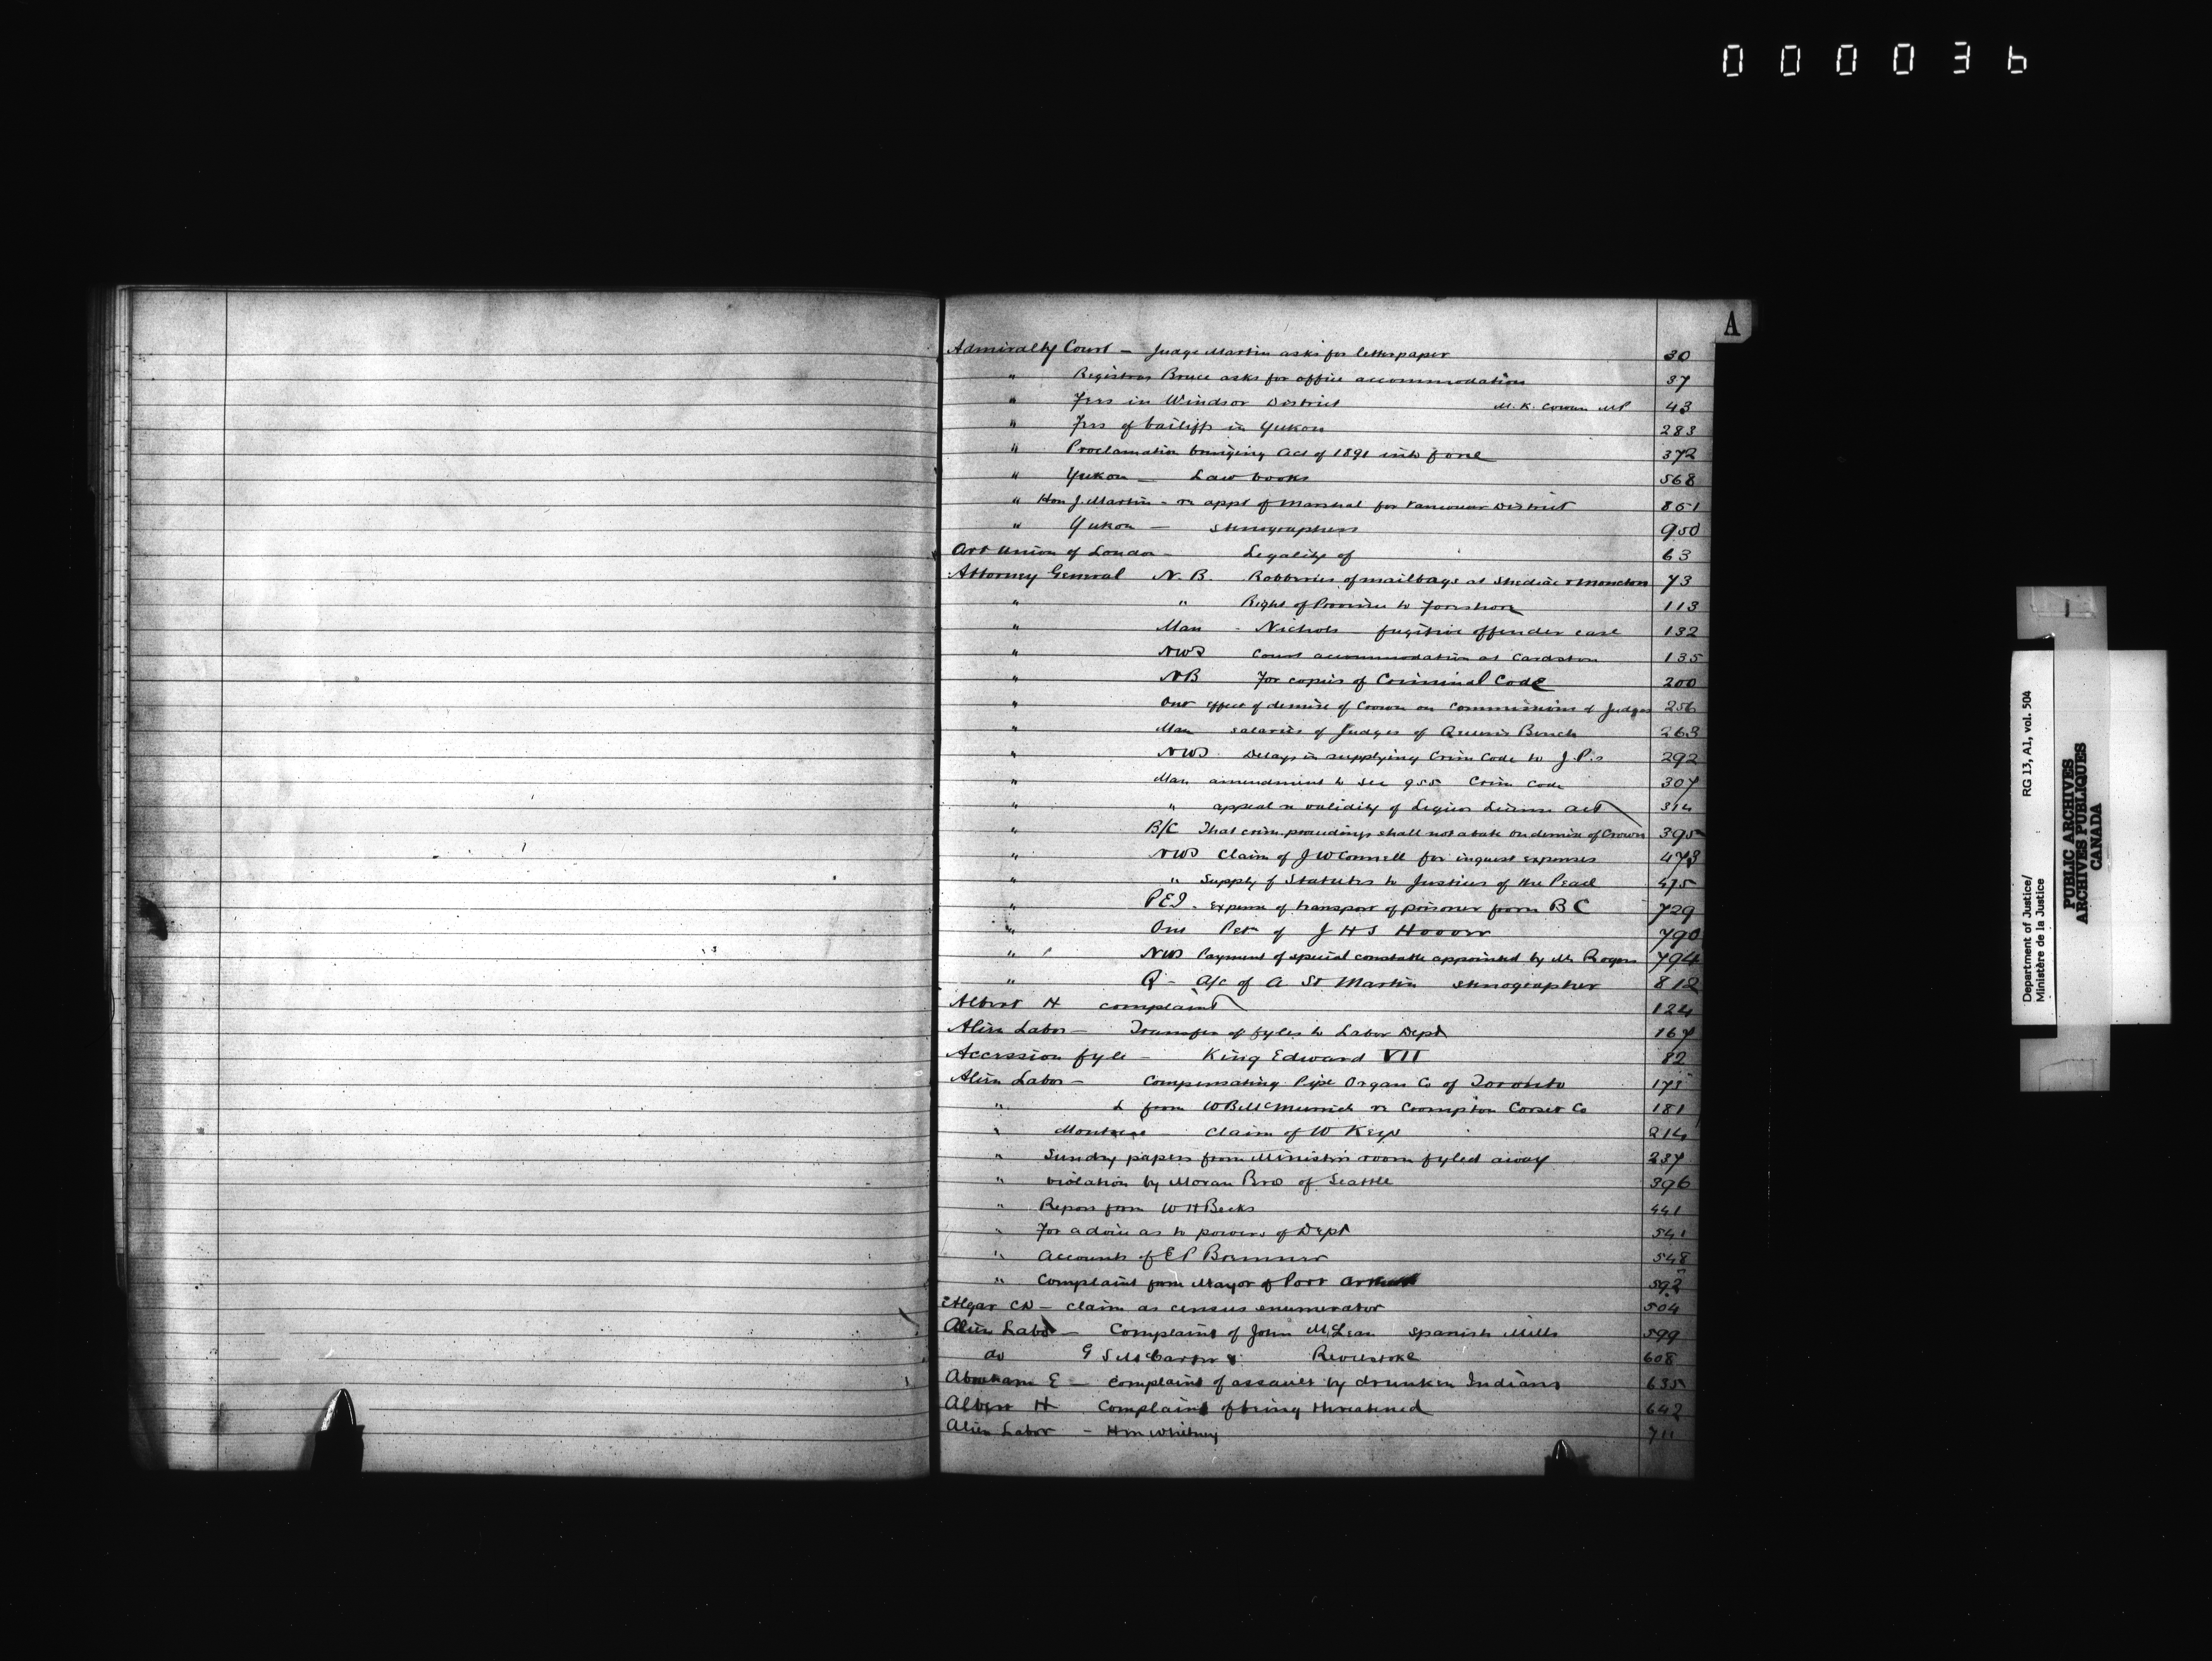 000036
A
Admiralty Court - Judge Martin asks for letterpaper 30
" Registrar Bruce asks for office accommodation 37
" Fees in Windsor District M. K. Cowan MP 43
" Fees of bailiffs in Yukon 283
" Proclamation bringing Act of 1891 into force 372
" Yukon - Law books 568
" Hon J. Martin - re appt of Marshal for Vancouver District 851
" Yukon - stenographers 950
Art Union of London - Legality of 63
Attorney General N. B. Robberies of mailbags at Shediac & Moncton 73
" " Right of Province to Foreshore 113
" Man - Nichols - fugitive offender case 132
" NWT Court accommodation at Cardston 135
" NB For copies of Criminal Code 200
" Ont effect of demise of Crown on Commissions of Judges 256
" Man salaries of Judges of Queen's Bench 263
" NWT Delays in supplying Crim Code to J.P.s 292
" Man amendment to Sec 955 Crim Code 307
" " appeal re validity of Liquor License Act 314
" B/C That crim. proceedings shall not abate on demise of Crown 395
" NWT Claim of J W Connell for inquest expenses 473
" " Supply of Statutes to Justices of the Peace 475
" PEI - expense of transport of prisoner from B C 729
" Ont Petn of J H S Hoover 790
" NWT Payment of special constable appointed by Mr Rogers 794
" Q - A/c of A St Martin stenographer 812
Albert H complaint 124
Alien Labor - Transfer of fyles to Labor Dept 167
Accession fyle - King Edward VII 82
Alien Labor - Compensating Pipe Organ Co of Toronto 173
" L from W B McMurrich re Crompton Corset Co 181
" Montrose - Claim of W Keys 214
" Sundry papers from Minister's room fyled away 237
" violation by Moran Bros of Seattle 396
" Report from W H Becks 441
" For advice as to powers of Dept 541
" Accounts of E P Bremner 548
" Complaint from Mayor of Port Arthur 592
Algar C D - claim as census enumerator 504
Alien Labor - Complaint of John McLean Spanish Mills 599
do G S McCarter Revelstoke 608
Abraham E - Complaint of assault by drunken Indians 635
Albert H Complaint of being threatened 642
Alien Labor - H M Whitney 711
Department of Justice/
Ministère de la Justice
RG 13, A1, vol. 504
PUBLIC ARCHIVES
ARCHIVES PUBLIQUES
CANADA